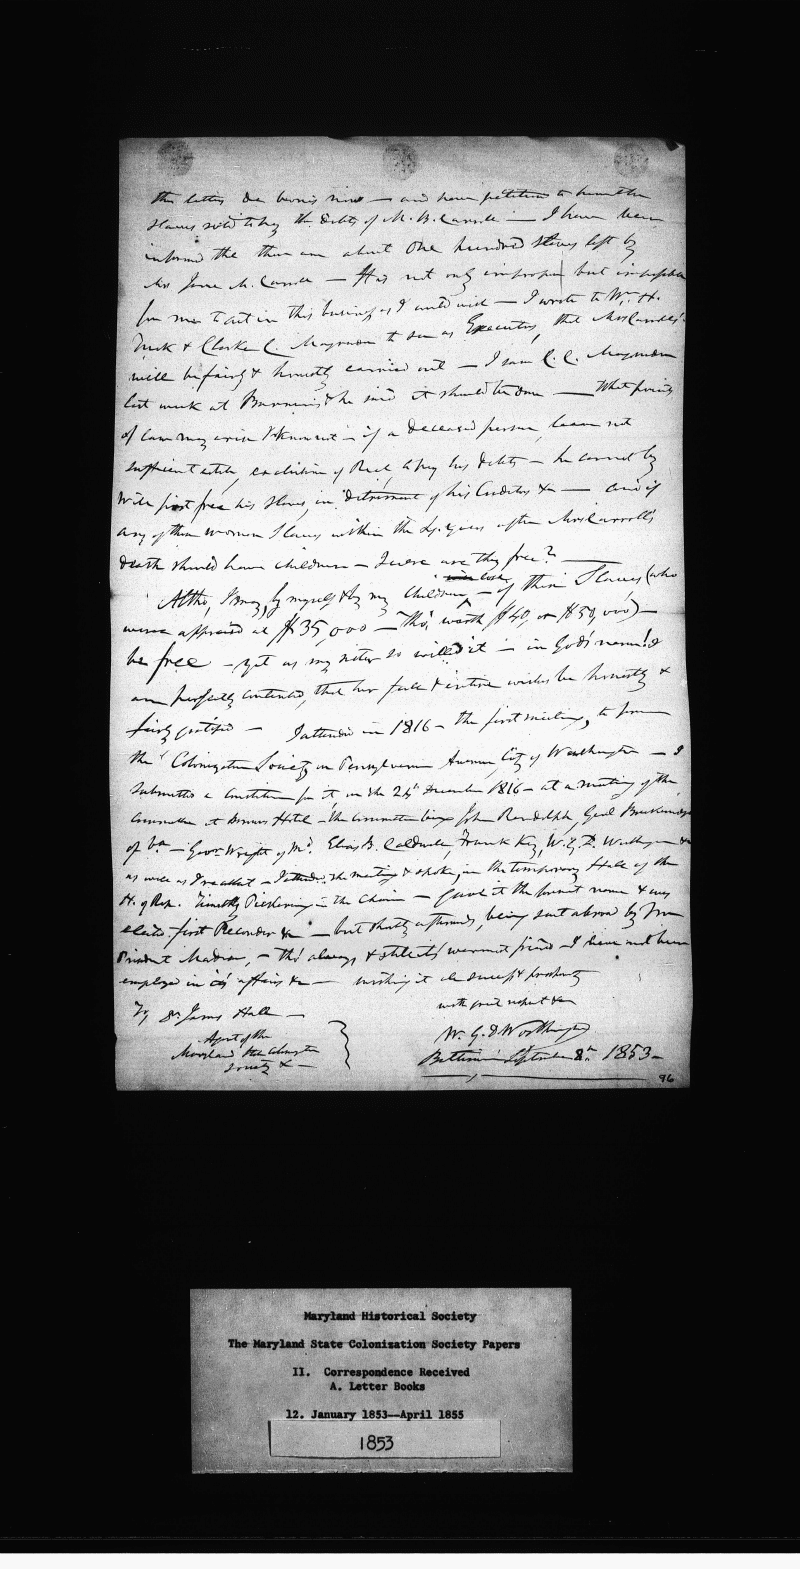 the letter de bonis non — and have petition to have the
slaves sold to pay the debts of M. B. Carroll — I have been
informed the there are about One hundred slaves left by
Mrs Jane M. Carroll — It is not only improper but impossible
for me to act in this business as I could wish — I wrote to Wm. H.
Tuck & Clarke C. Magruder to see as Executors, that Mrs Carroll's
will be fairly & honestly carried out — I saw C. C. Magruder
last week at Barnum's & he said it should be done — What points
of law may arise I know not — if a deceased person, leave not
sufficient estate, exclusive of Real to pay his debts — he cannot by
Will first free his slaves, in detriment of his Creditors &c — and if
any of these women Slaves within the years after Mrs Carroll's
death should have children — are they free? —
Altho, I may, by myself & by my Children, lose — of these Slaves (who
were appraised at $35,000 — tho' worth $40, or $50,000) —
be free — yet as my sister so willed it — in God's name! I
am perfectly contented, that her full & entire wishes be honestly &
fairly gratified — I attended in 1816 — the first meeting, to form
the Colonization Society on Pennsylvania Avenue City of Washington — I
submitted a Constitution for it on the 24th December 1816 — at a meeting of the
Committee at Hotel — the Committee being John Randolph, Genl Breckinridge
of Va — Govr Wright of Md. Elias B. Caldwell, Frank Key, W. G. D. Worthington &c
as well as I recollect — I attended the meeting & spoke, in the temporary Hall of the
H. of Rep. Timothy Pickering in the Chair — gave it the present name & was
elected first Recorder &c — but shortly afterwards, being sent abroad by
President Madison, — tho' always & still its warmest friend — I have not been
employed in its affairs &c — wishing it all success & prosperity
with great respect &c
To Dr. James Hall —
Agent of the
Maryland State Colonization
Society &c —
W. G. D. Worthington
Baltimore September 8th 1853 —
96
Maryland Historical Society
The Maryland State Colonization Society Papers
II. Correspondence Received
A. Letter Books
12. January 1853--April 1855
1853